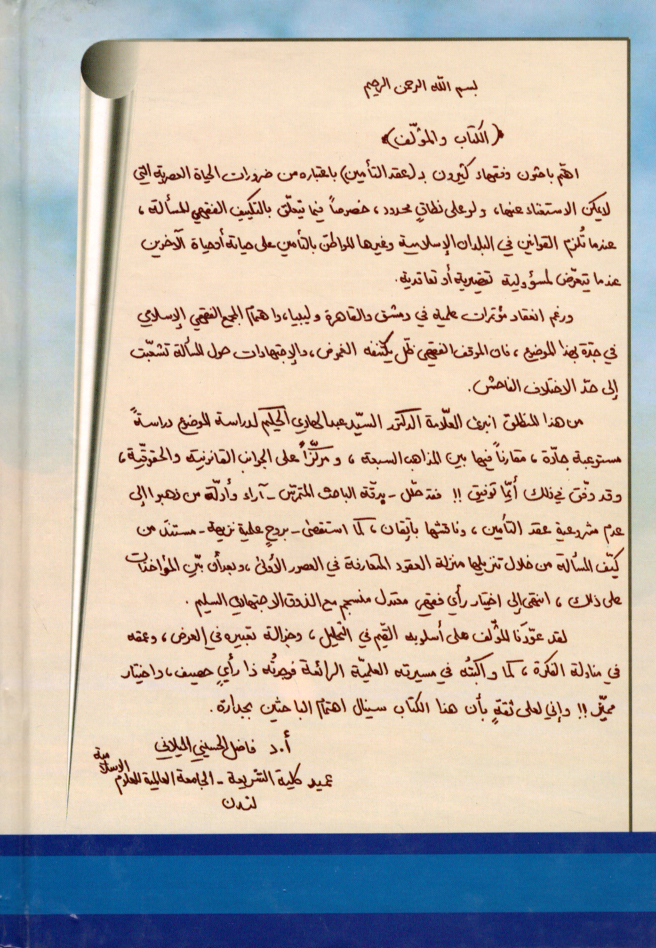 بسم الله الرحمن الرحيم
﴿الكتاب والمؤلّف﴾
اهتم باحثون وفقهاء كثيرون بـ (عقد التأمين) باعتباره من ضرورات الحياة العصرية التي
لايمكن الاستغناء عنها، ولو على نطاقٍ محدد، خصوصاً فيما يتعلّق بالتكييف الفقهي للمسألة،
عندما تُلزم القوانين في البلدان الإسلامية وغيرها المواطن بالتأمين على حياته أو حياة الآخرين
عندما يتعرّض لمسؤولية تقصيرية أو تعاقدية.
ورغم انعقاد مؤتمرات علمية في دمشق والقاهرة وليبيا، واهتمام المجمع الفقهي الإسلامي
في جدّة بهذا الموضوع، فان الموقف الفقهي ظل يكتنفه الغموض، والاجتهادات حول المسألة تشعّبت
إلى حدّ الاختلاف الفاحش.
من هذا المنطلق انبرى العلّامة الدكتور السيّد عبد الهادي الحكيم لدراسة الموضوع دراسةً
مستوعبة جادّة، مقارناً فيها بين المذاهب السبعة، ومركّزاً على الجوانب القانونية والحقوقيّة،
وقد وفّق في ذلك أيّما توفيق !! فقد حلّل - بدقّة الباحث المتمرّس - آراء وأدلّة من ذهبوا إلى
عدم مشروعية عقد التأمين، وناقشها بإتقان، كما استقصى - بروحٍ علمية نزيهة - مستند من
كيّف المسألة من خلال تنزيلها منزلة العقود المتعارفة في العصور الأُولى، وبعد أن بيّن المؤاخذات
على ذلك، انتهى إلى اختيار رأي فقهي معتدل منسجم مع الذوق الاجتهادي السليم.
لقد عوّدنا المؤلف على أسلوبه القيّم في التحليل، وجزالة تعبيره في العرض، وعمقه
في مناولة الفكرة، كما واكبتُه في مسيرته العلميّة الرائعة فوجدتُه ذا رأيٍ حصيف، واختيار
مميّز !! وإني لعلى ثقةٍ بأن هذا الكتاب سينال اهتمام الباحثين بجدارة.
أ. د فاضل الحسيني الميلاني
عميد كلية الشريعة - الجامعة العالمية للعلوم الإسلامية
لندن